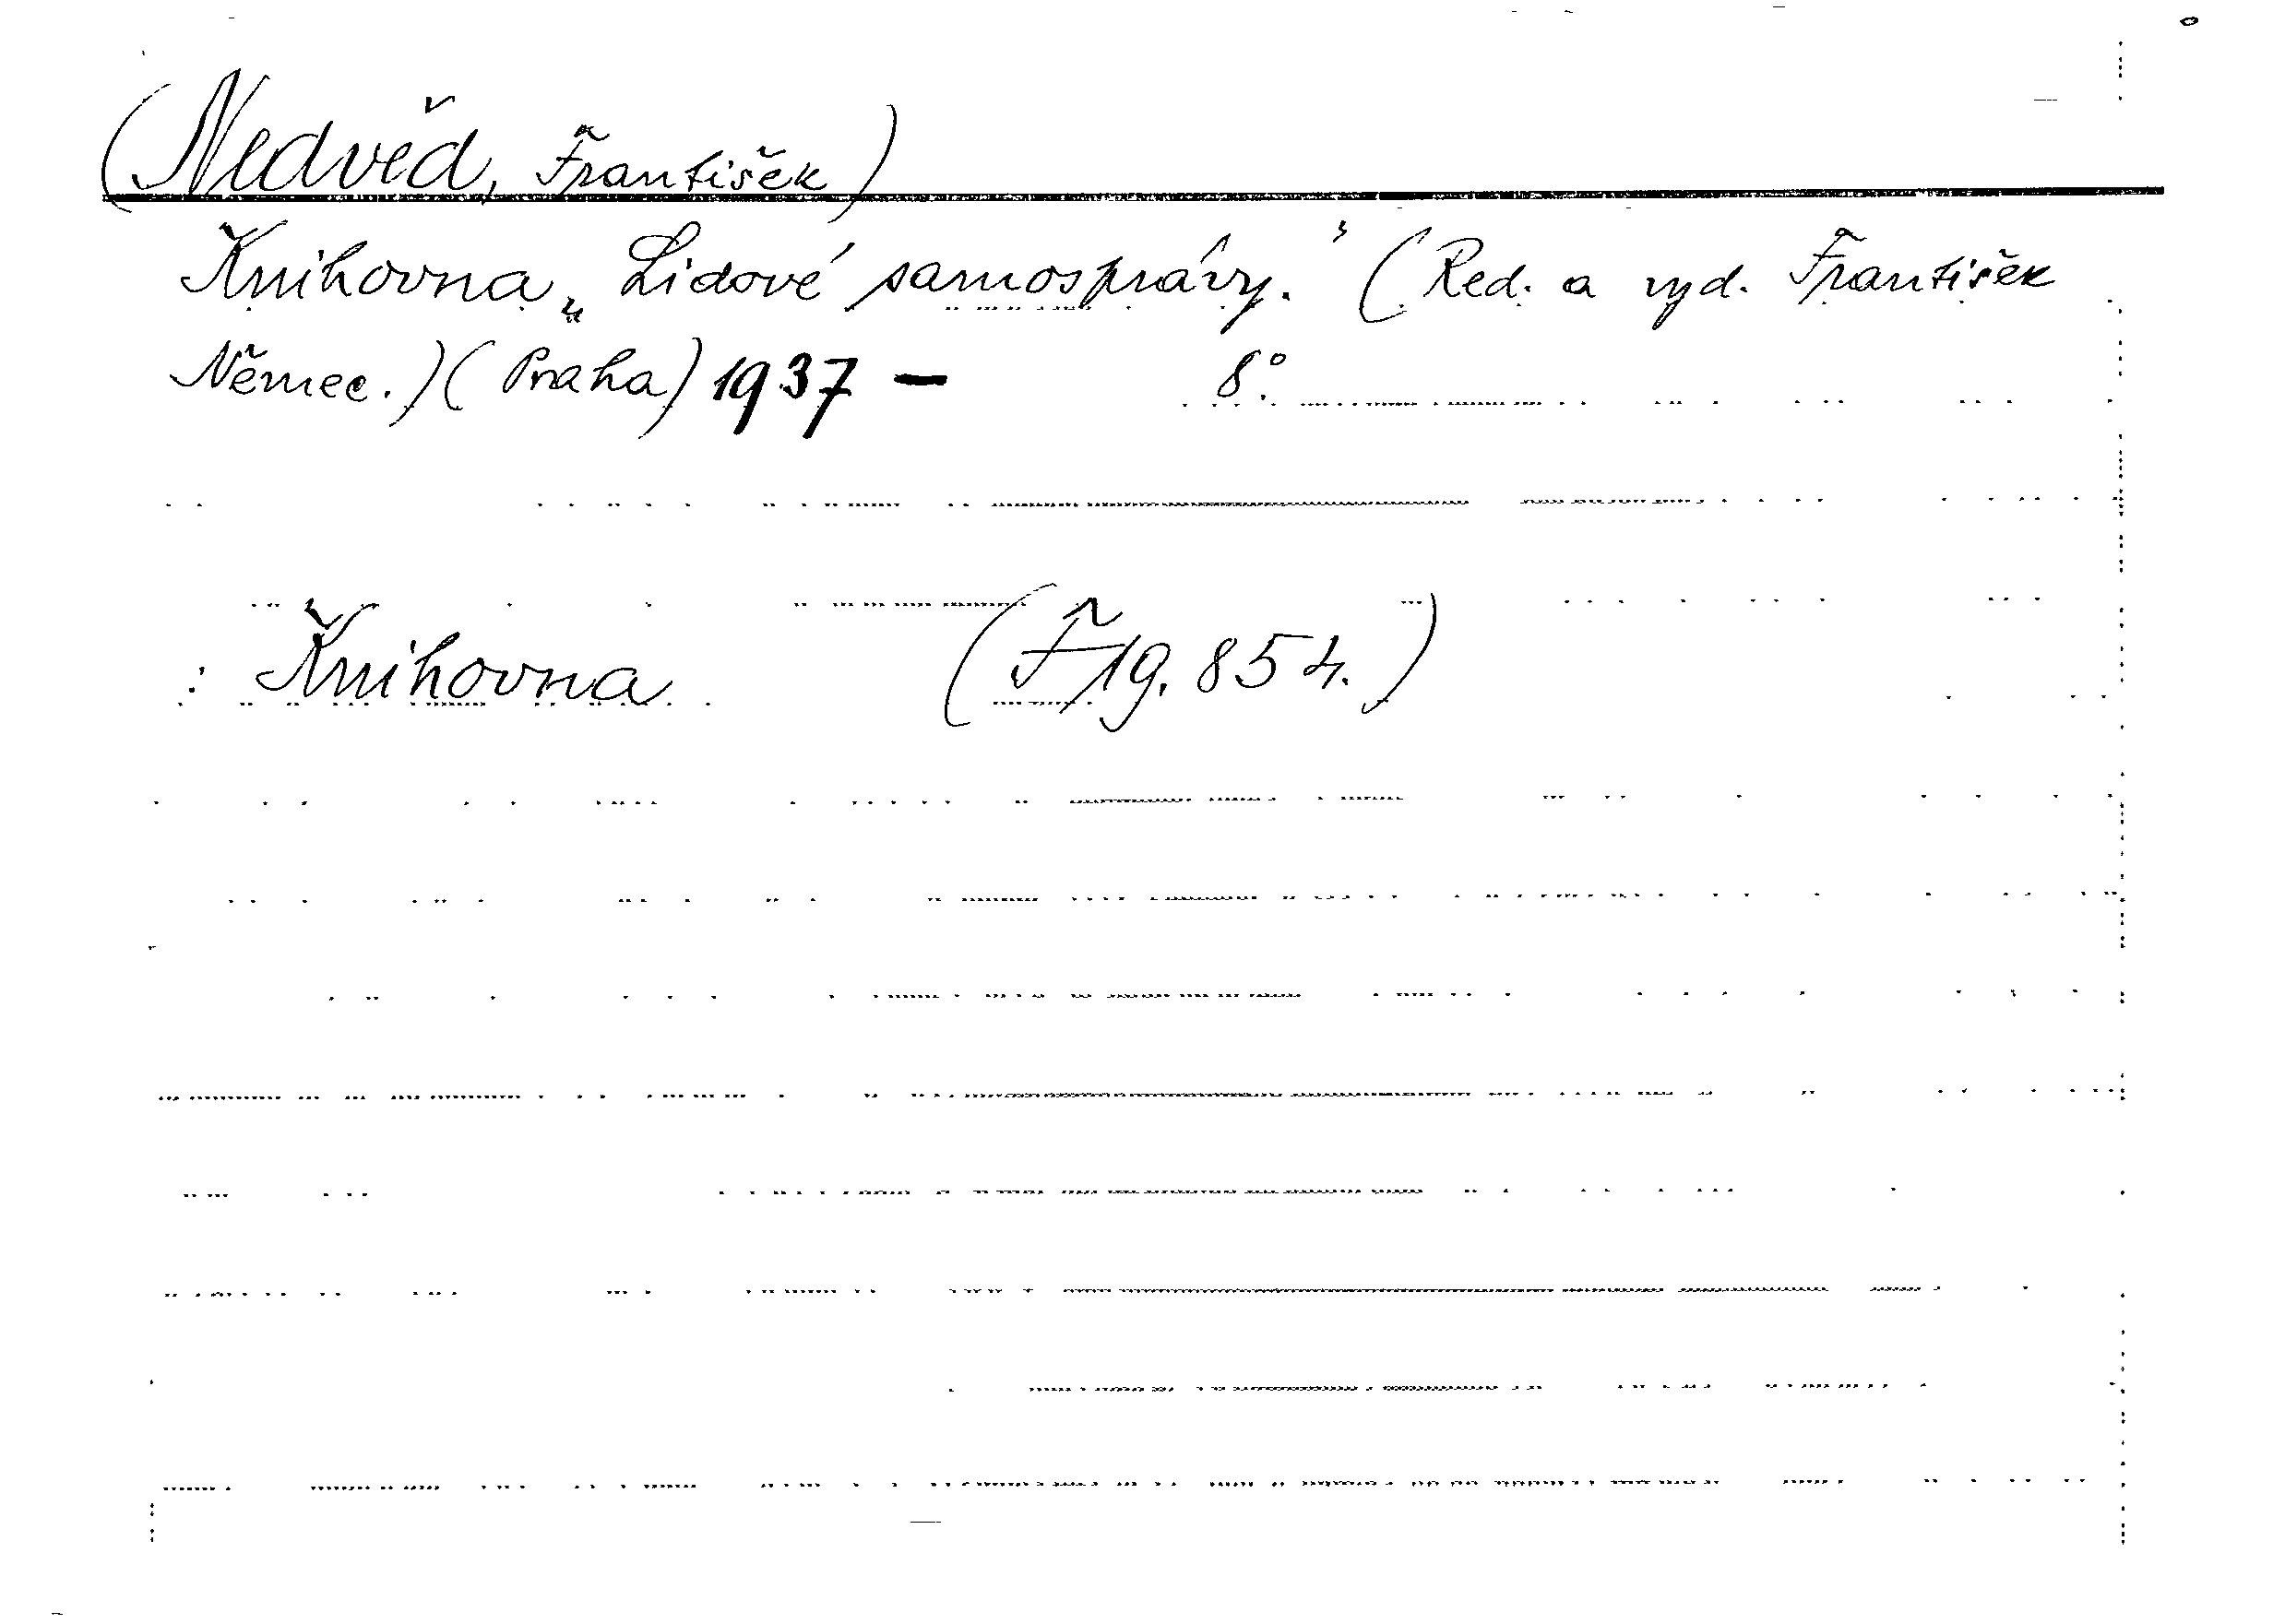 (Nedvěd, František)
Knihovna „Lidové samosprávy." (Red. a vyd. František
Němec.) (Praha) 1937 – 8°.
: Knihovna (F 19.854.)